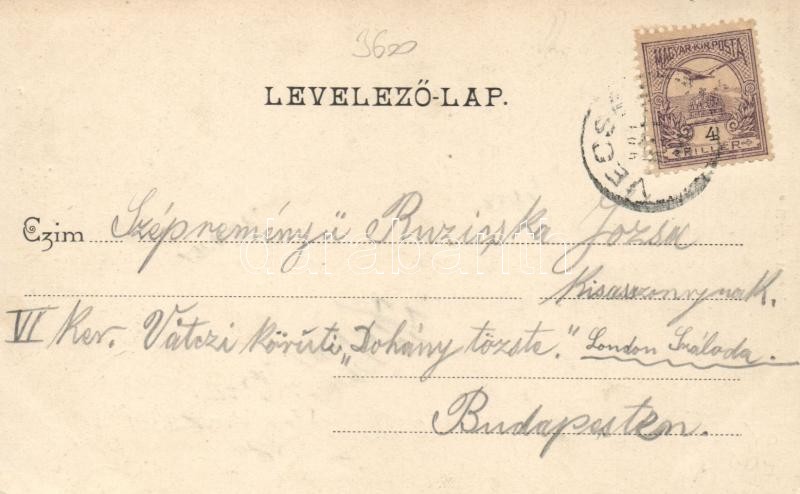 3600
MAGYAR KIR. POSTA
4
FILLÉR
VECS
LEVELEZŐ-LAP.
Czim Szépreményű Ruzicska Jozsa
Kisasszonynak.
VI ker. Vátczi körúti „Dohány tőzsde." London Szálloda.
Budapesten.
darabanth